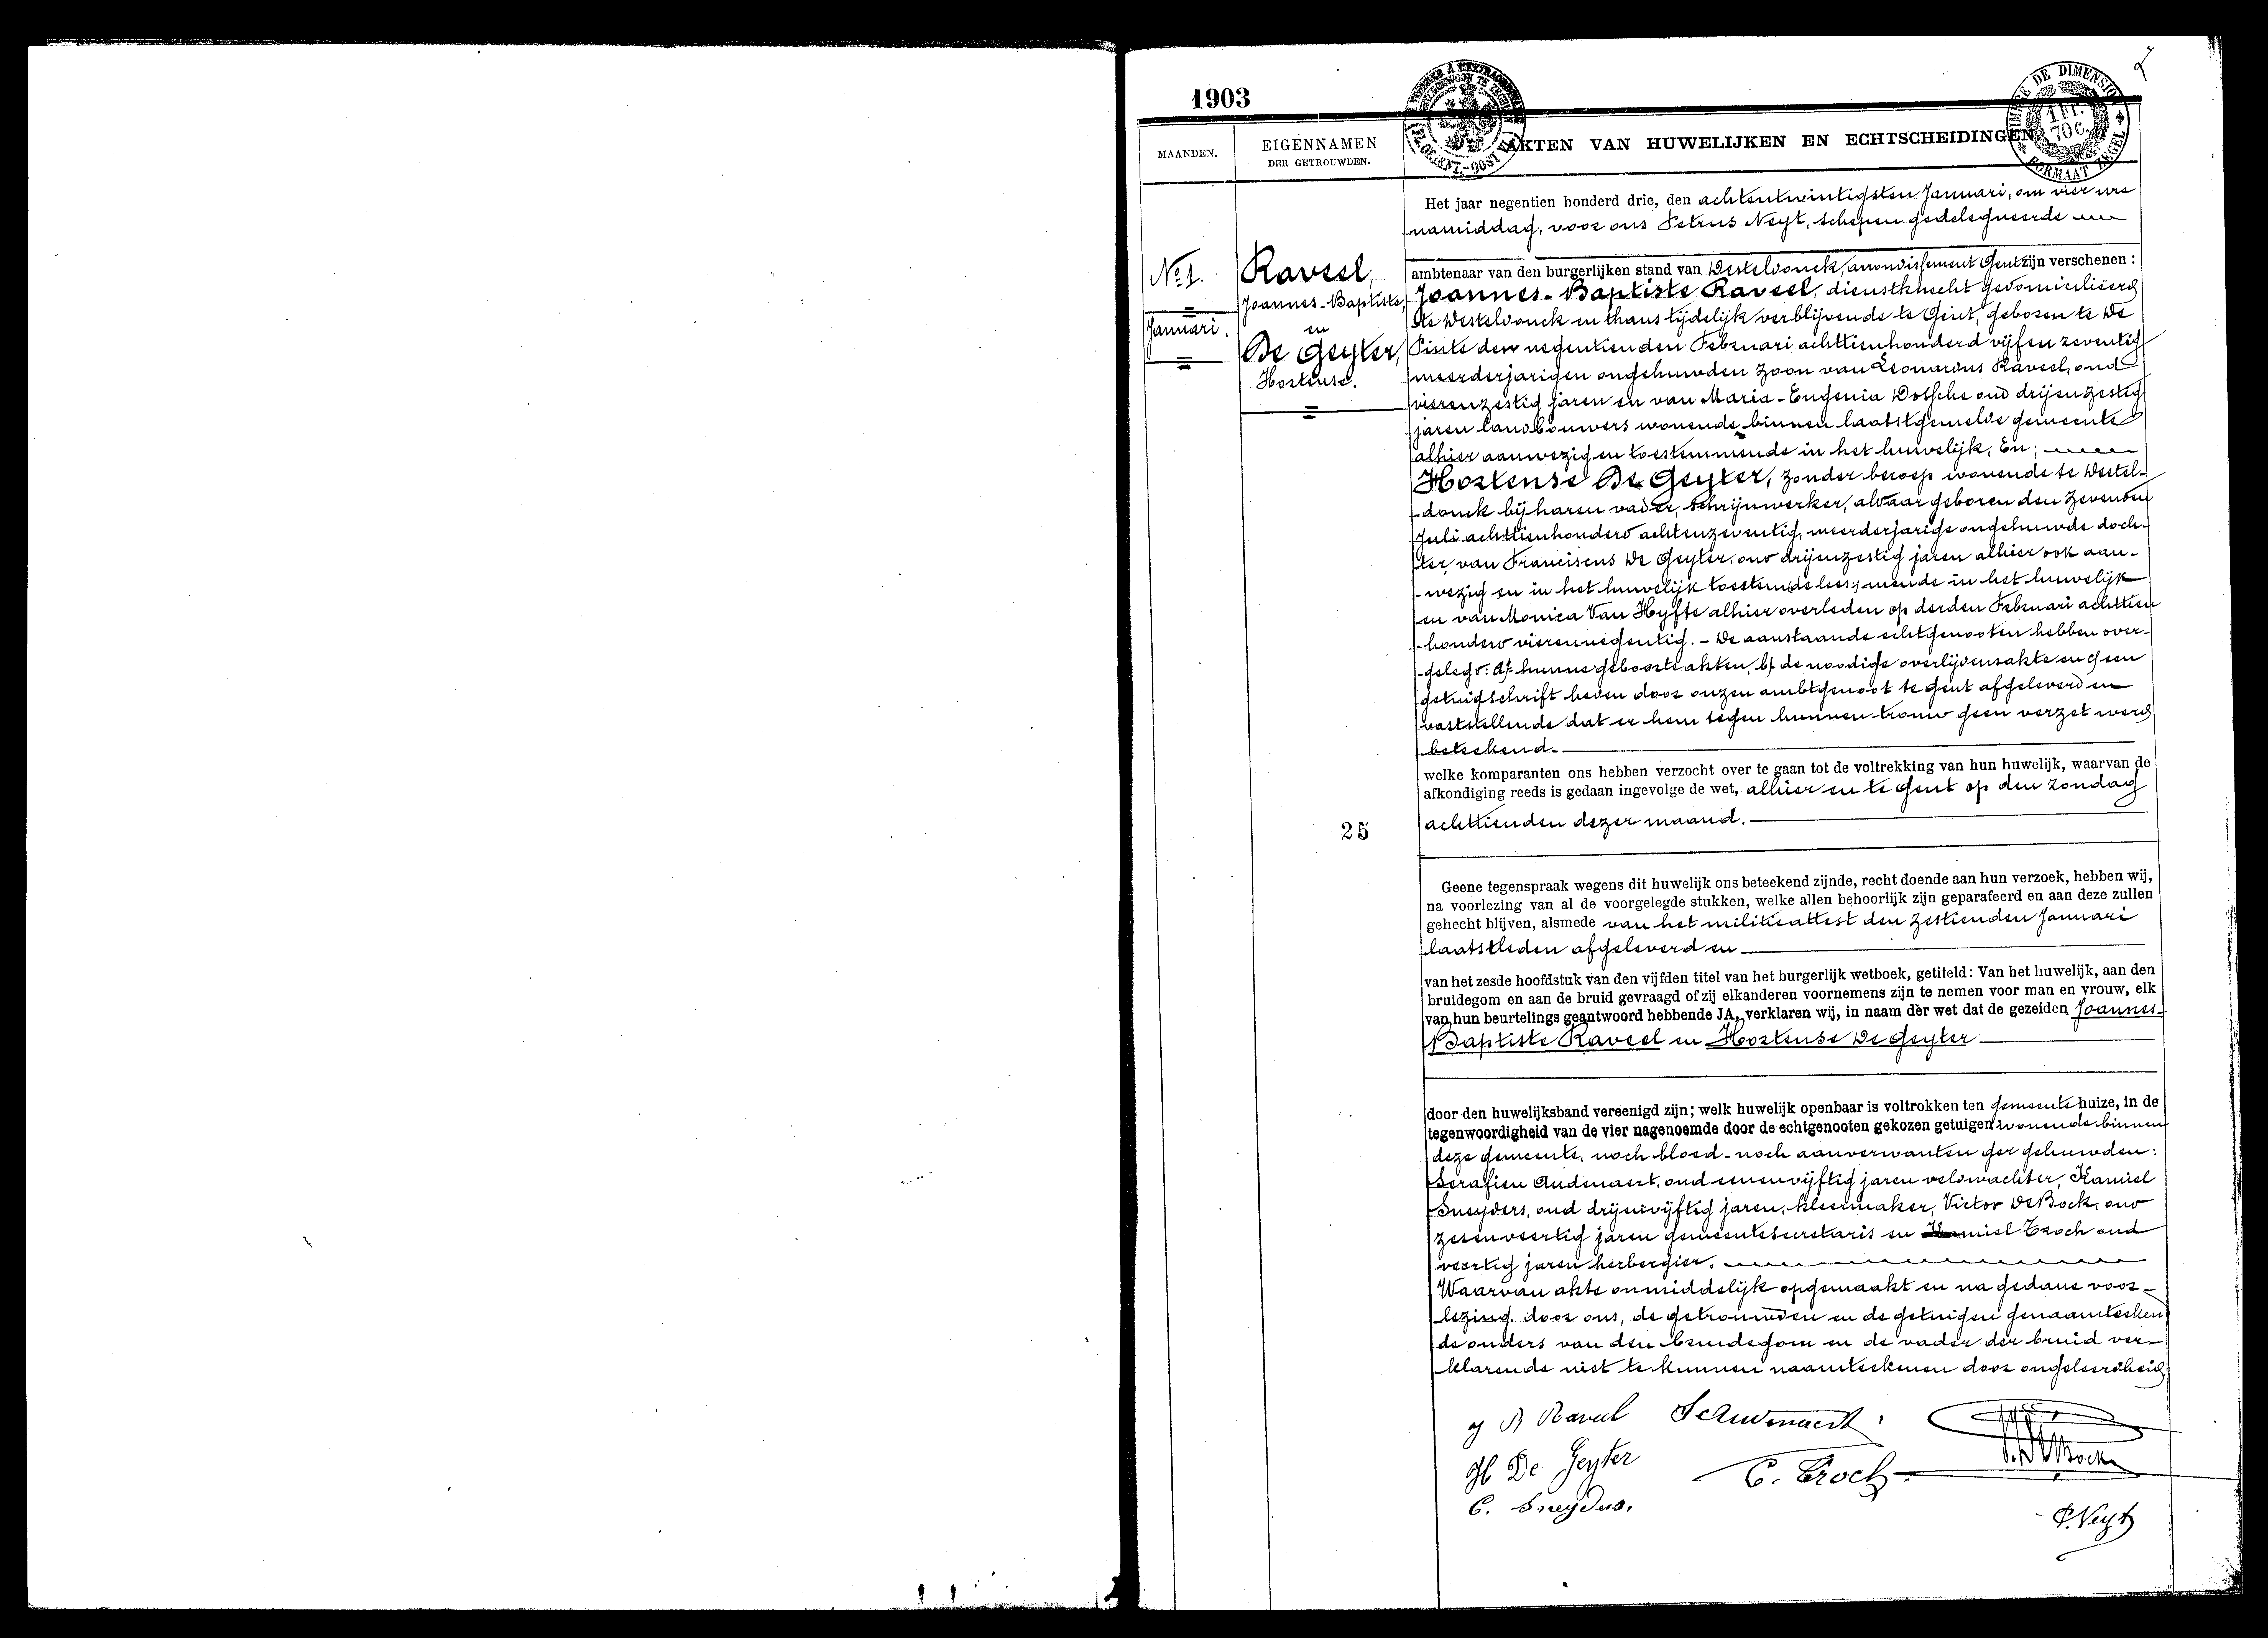 1903
MAANDEN.
EIGENNAMEN
DER GETROUWDEN.
AKTEN VAN HUWELIJKEN EN ECHTSCHEIDINGEN
DE DIMENSION
1 FR.
70 C.
FORMAAT ZEGEL
No 1.
Januari.
Raveel,
Joannes-Baptiste,
en
De Geyter,
Hortense.
25
Het jaar negentien honderd drie, den achtentwintigsten Januari, om vier ure
namiddag, voor ons Petrus Neyt, schepen gedelegueerde
ambtenaar van den burgerlijken stand van Desteldonck, arrondissement Gent zijn verschenen :
Joannes-Baptiste Raveel, dienstknecht gedomicilieerd
te Desteldonck en thans tijdelijk verblijvende te Gent, geboren te De
Pinte den negentienden Februari achttienhonderd vijfenzeventig
meerderjarigen ongehuwden zoon van Leonardus Raveel, oud
vierenzestig jaren en van Maria-Eugenia Dossche oud drijenzestig
jaren landbouwers wonende binnen laatstgemelde gemeente
alhier aanwezig en toestemmende in het huwelijk, En;
Hortense De Geyter, zonder beroep wonende te Destel-
donck bij haren vader, schrijnwerker, aldaar geboren den zevenden
Juli achttienhonderd achtenzeventig, meerderjarige ongehuwde doch-
ter van Franciscus De Geyter, oud drijenzestig jaren alhier ook aan-
wezig en in het huwelijk toestemde lees: mende in het huwelijk
en van Monica Van Hyfte alhier overleden op derden Februari achttien
honderd vierennegentig. - De aanstaande echtgenooten hebben over-
gelegd: A/ hunne geboorteakten, b/ de noodige overlijdensakte en c/ een
getuigschrift heden door onzen ambtgenoot te Gent afgeleverd en
vaststellende dat er hem tegen hunnen trouw geen verzet werd
beteekend.
welke komparanten ons hebben verzocht over te gaan tot de voltrekking van hun huwelijk, waarvan de
afkondiging reeds is gedaan ingevolge de wet, alhier en te Gent op den zondag
achttienden dezer maand.
Geene tegenspraak wegens dit huwelijk ons beteekend zijnde, recht doende aan hun verzoek, hebben wij,
na voorlezing van al de voorgelegde stukken, welke allen behoorlijk zijn geparafeerd en aan deze zullen
gehecht blijven, alsmede van het militieattest den zestienden Januari
laatstleden afgeleverd en
van het zesde hoofdstuk van den vijfden titel van het burgerlijk wetboek, getiteld: Van het huwelijk, aan den
bruidegom en aan de bruid gevraagd of zij elkanderen voornemens zijn te nemen voor man en vrouw, elk
van hun beurtelings geantwoord hebbende JA, verklaren wij, in naam der wet dat de gezeiden Joannes-
Baptiste Raveel en Hortense De Geyter
door den huwelijksband vereenigd zijn; welk huwelijk openbaar is voltrokken ten gemeente huize, in de
tegenwoordigheid van de vier nagenoemde door de echtgenooten gekozen getuigen wonende binnen
deze gemeente, noch bloed- noch aanverwanten der gehuwden:
Serafien Audenaert, oud eenenvijftig jaren veldwachter, Kamiel
Sneyders, oud drijenvijftig jaren, kleermaker, Victor De Bock, oud
zesenveertig jaren gemeentesecretaris en Kamiel Croch oud
veertig jaren herbergier.
Waarvan akte onmiddelijk opgemaakt en na gedane voor-
lezing. door ons, de getrouwden en de getuigen genaamteekend
de ouders van den bruidegom en de vader der bruid ver-
klarende niet te kunnen naamteekenen door ongeleerdheid.
J B Raveel
S Audenaert
H De Geyter
C. Croch
C. Sneyders.
P. Neyt